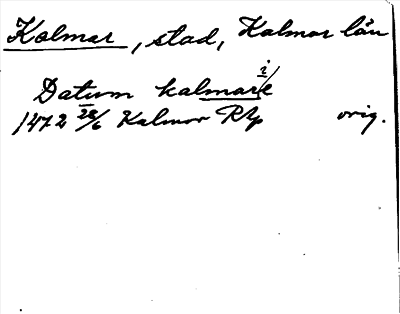 Kalmar, stad, Kalmar län
Datum kalmar i/e
1472 28/6 Kalmar Rp orig.